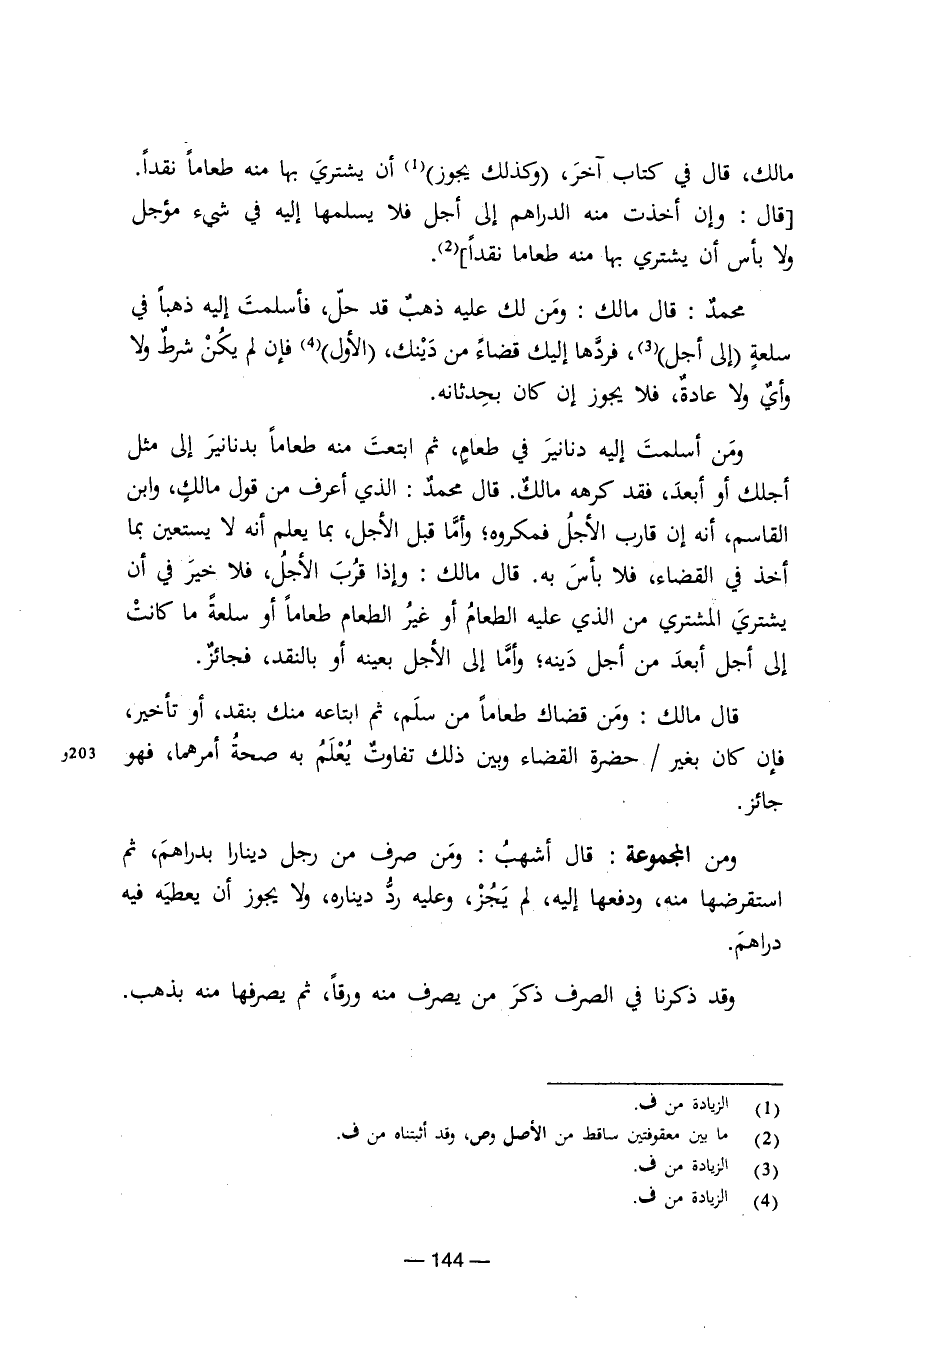 مالك، قال في كتاب آخرَ، (وكذلك يجوز)(1) أن يشتريَ بها منه طعاماً نقداً.
[قال : وإن أخذت منه الدراهم إلى أجل فلا يسلمها إليه في شيء مؤجل
ولا بأس أن يشتري بها منه طعاما نقداً](2).
محمدٌ : قال مالك : ومَن لك عليه ذهبٌ قد حلّ، فأسلمتَ إليه ذهباً في
سلعةٍ (إلى أجل)(3)، فردَّها إليك قضاءً من دَيْنك، (الأول)(4) فإن لم يكُنْ شرطٌ ولا
وأيٌ ولا عادةٌ، فلا يجوز إن كان بحِدثانه.
ومَن أسلمتَ إليه دنانيرَ في طعامٍ، ثم ابتعتَ منه طعاماً بدنانيرَ إلى مثل
أجلك أو أبعدَ، فقد كرهه مالكٌ. قال محمدٌ : الذي أعرف من قول مالكٍ، وابن
القاسم، أنه إن قارب الأجلُ فمكروه؛ وأمَّا قبل الأجل، بما يعلم أنه لا يستعين بما
أخذ في القضاء، فلا بأسَ به. قال مالك : وإذا قرُبَ الأجلُ، فلا خيرَ في أن
يشتريَ المشتري من الذي عليه الطعامُ أو غيرُ الطعام طعاماً أو سلعةً ما كانتْ
إلى أجل أبعدَ من أجل دَينه؛ وأمَّا إلى الأجل بعينه أو بالنقد، فجائزٌ.
قال مالك : ومَن قضاك طعاماً من سلَم، ثم ابتاعه منك بنقد، أو تأخير،
فإن كان بغير / حضرة القضاء وبين ذلك تفاوتٌ يُعْلَمُ به صحةُ أمرهما، فهو 203و
جائز.
ومن المجموعة : قال أشهبُ : ومَن صرف من رجل دينارا بدراهمَ، ثم
استقرضها منه، ودفعها إليه، لم يَجُزْ، وعليه ردُّ ديناره، ولا يجوز أن يعطيَه فيه
دراهمَ.
وقد ذكرنا في الصرف ذكرَ من يصرف منه ورقاً، ثم يصرفها منه بذهب.
(1) الزيادة من ف.
(2) ما بين معقوفتين ساقط من الأصل وص، وقد أثبتناه من ف.
(3) الزيادة من ف.
(4) الزيادة من ف.
— 144 —